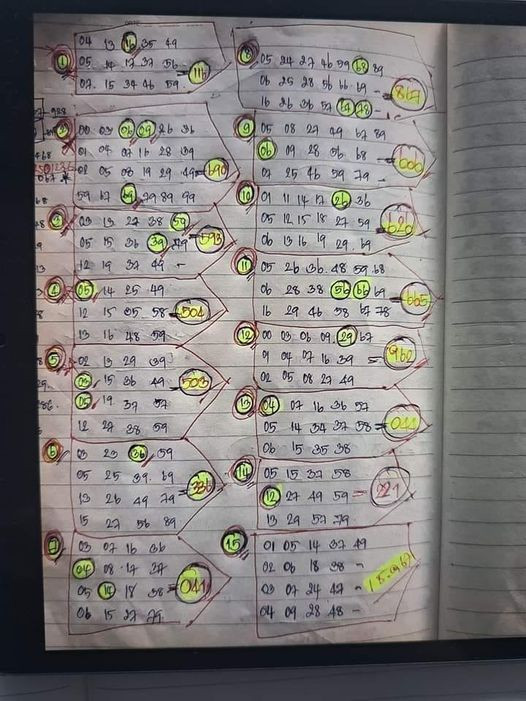 ①
04 13 16 35 49
05 14 17 37 56 -
07. 15 34 46 59. = 116
②
00 03 06 09 26 36
01 04 07 16 28 39
02 05 08 19 29 49 = 690
59 67 69 79 89 99
③
03 13 27 38 59
05 15 36 39 79 = 593
12 19 37 49 -
④
05 14 25 49
12 15 05 58 = 504
13 16 48 59
⑤
02 13 29 69
03 15 36 49 = 503
05 19 37 57
12 27 38 59
⑥
03 23 36 59
05 25 39 69
13 26 49 79 = 336
15 27 56 89
⑦
03 07 16 36
04 08 17 27
05 14 18 38 = 041
06 15 27 79
⑧
05 24 27 46 59 68 89
06 25 28 56 66 69 -
16 26 36 57 67 78 - = 867
⑨
05 08 27 49 67 89
06 09 28 56 68 - = 606
07 25 46 59 79 -
⑩
01 11 14 17 26 36
05 12 15 18 27 59 = 626
06 13 16 19 29 69
⑪
05 26 36 48 59 68
06 28 38 56 66 69 = 665
16 29 46 58 67 78
⑫
00 03 06 09 29 67
9 04 07 16 39 = 962
02 05 08 27 49
⑬
04 07 16 36 57
05 14 34 37 58 = 044
06 15 35 38
⑭
05 15 37 58
12 27 49 59 = 221
13 29 57 79
⑮
01 05 14 37 49
02 06 18 38 -
03 07 24 47 -
04 09 28 48 -